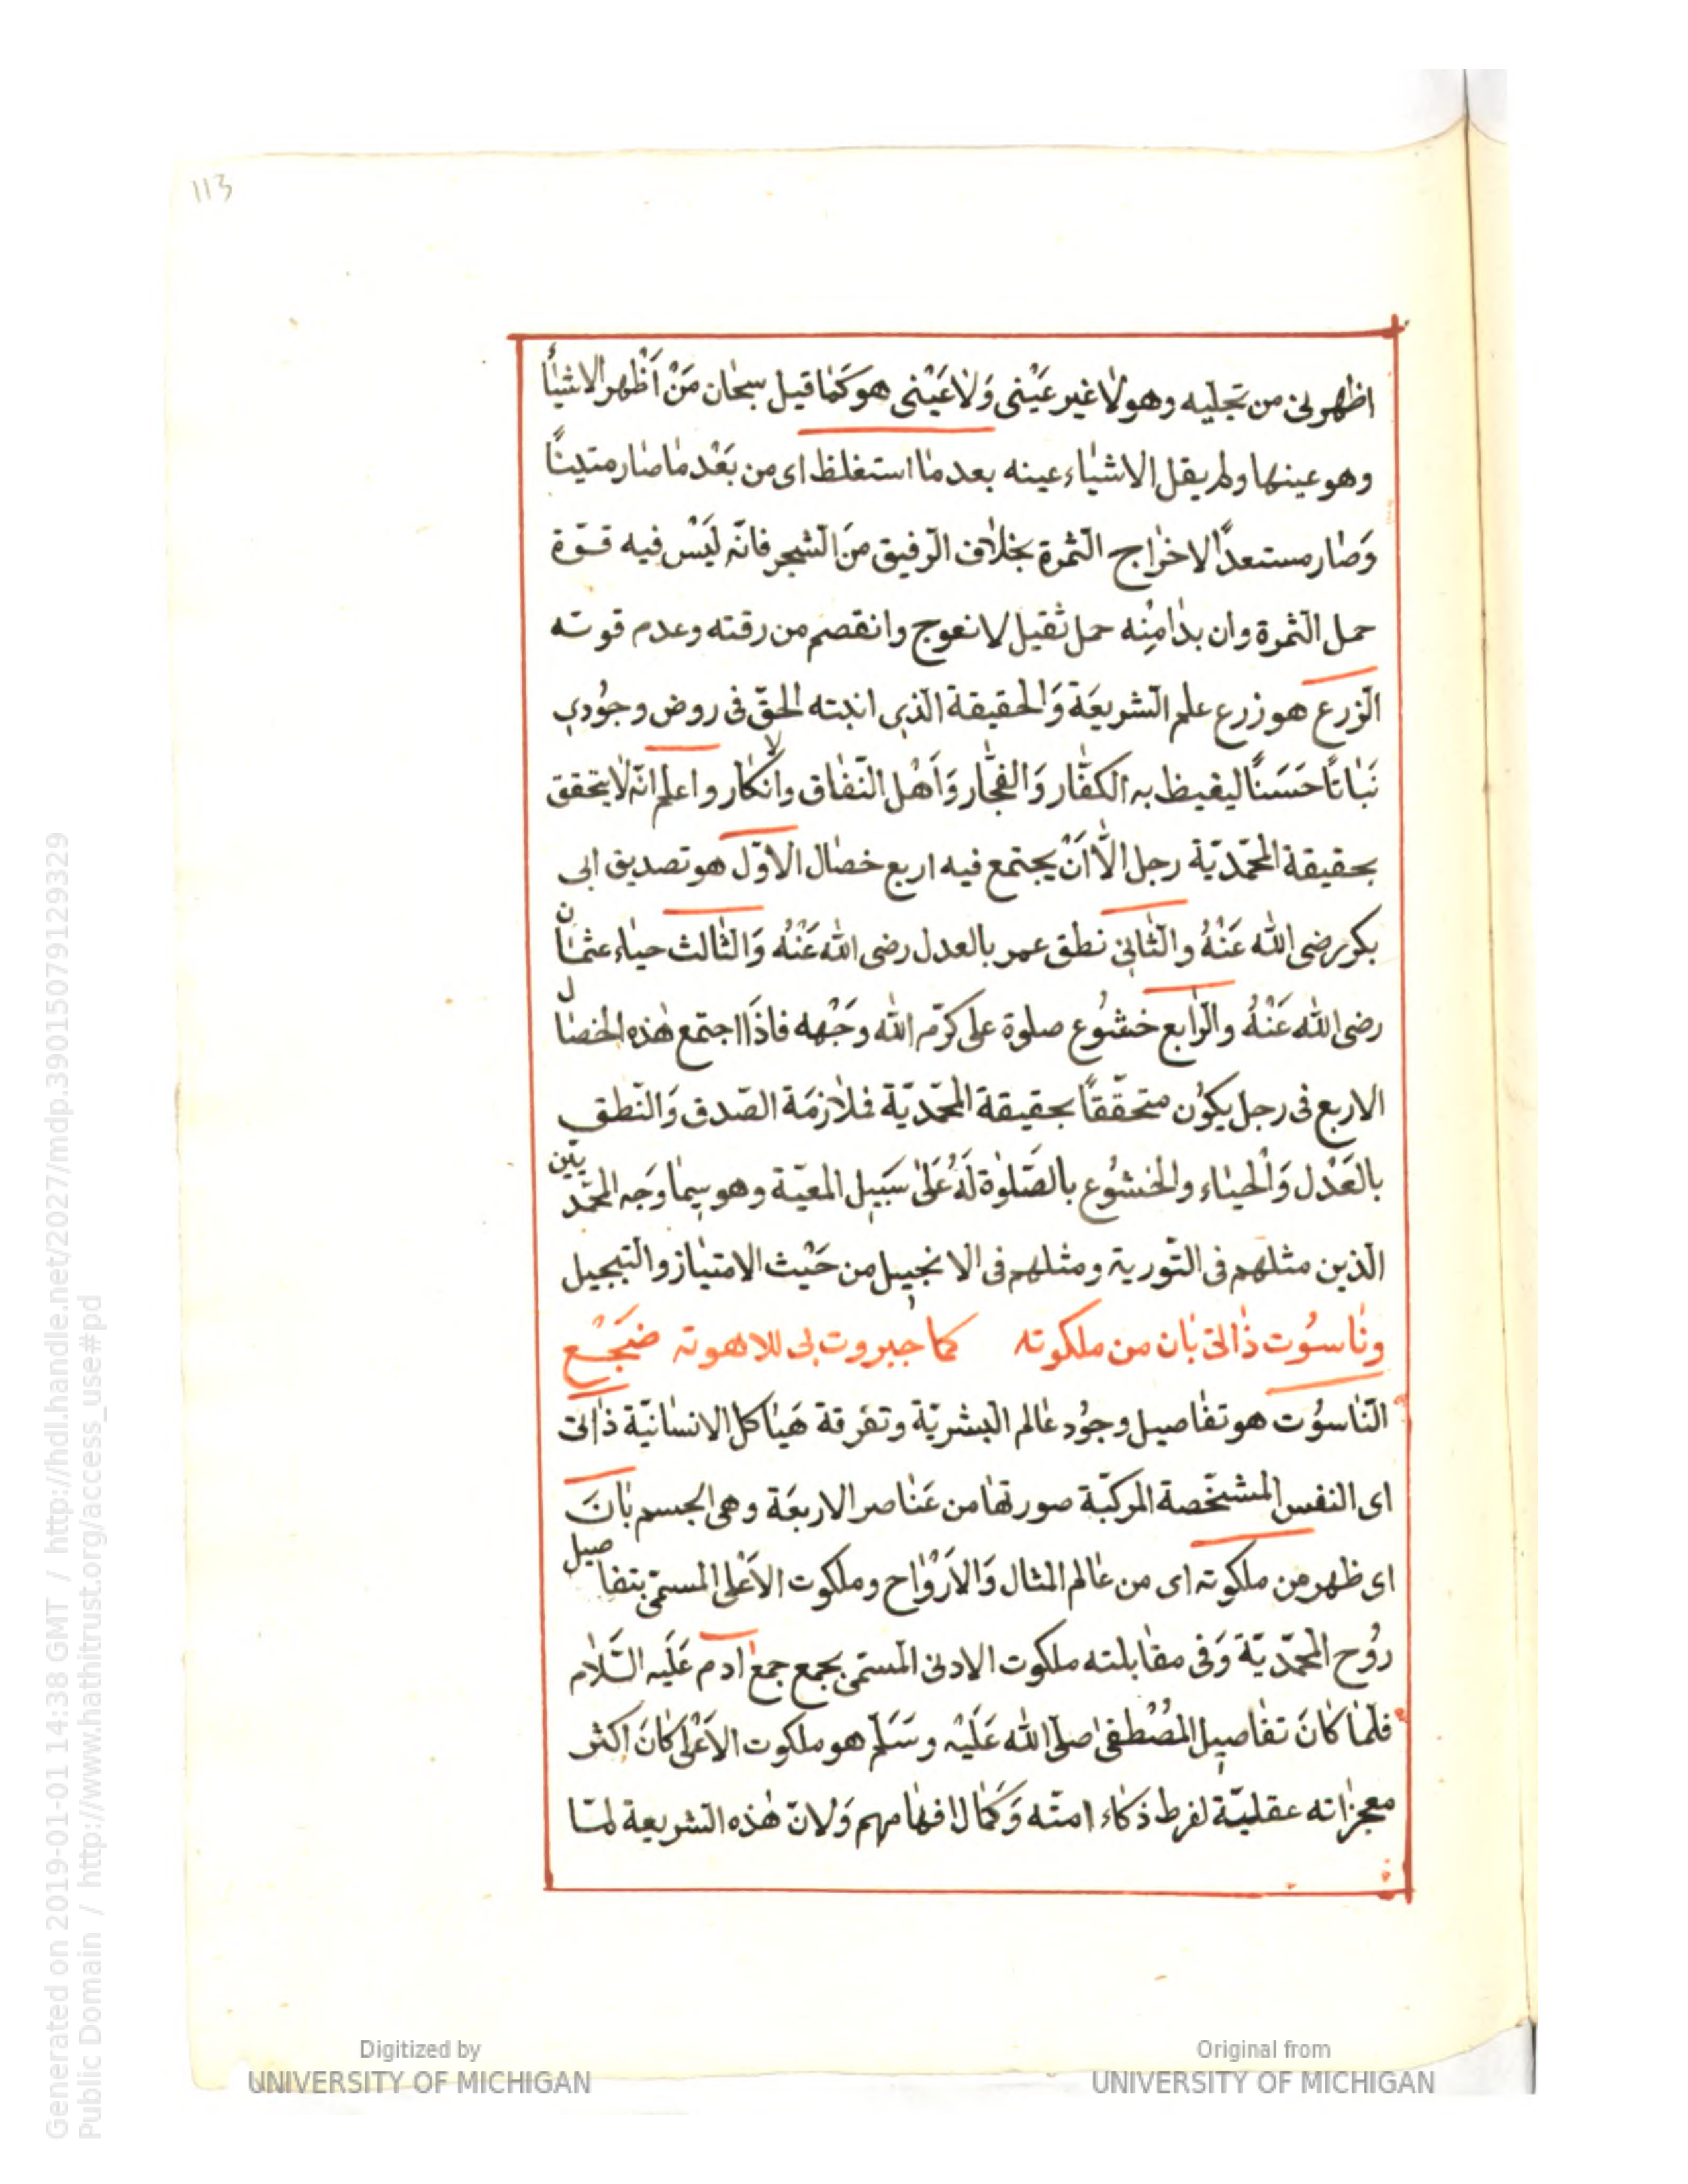 113
اظهرنى من تجليه وهو لا غير عَيْنى وَلا عَيْنى هو كَمَا قيل سبحان مَنْ اَظْهر الاشيأ
وهو عينها ولم يقل الاشياء عينه بعد ما استغلظ اى من بَعْد ما صار متينًا
وَصار مستعدًا لاخراج الثمرة بخلاف الرفيق مَن الشجر فانّه لَيْس فيه قوّة
حمل الثمرة وان بدا مِنه حمل ثقيل لانعوج وانقصم من رقته وعدم قوته
الزرع هو زرع علم الشريعَة وَالحقيقة الذى انبته الحقّ فى روض وجُودى
نَبَاتًا حَسَنًا ليغيظ به الكفّار وَالفجّار وَاَهْل النّفاق والانكار واعلم انّه لا يتحقق
بحقيقة المحمّديّة رجل الّا اَنْ يجتمع فيه اربع خصال الاوّل هو تصديق ابى
بكر رضى الله عَنْهُ والثانى نطق عمر بالعدل رضى الله عَنْهُ وَالثالث حياء عثمان
رضى الله عَنْهُ والرابع خشُوع صلوة على كرّم الله وَجْهه فاذَا اجتمع هذه الخصال
الاربع فى رجل يكوُن متحقّقًا بحقيقة المحمّديّة فلازمَة الصّدق وَالنّطق
بالعَدْل وَالْحياء والخشُوع بالصَلوٰة لَهُ عَلىٰ سَبيل المعيّة وهو سيما وَجه المحمّديّين
الّذين مثلهم فى التّورية ومثلهم فى الانجيل من حَيْث الامتياز والتبجيل
وناسُوت ذاتى بَان من ملكوته كما جبروت بى للاهوته ضَجْع
النّاسوُت هو تفاصيل وجوُد عالم البشريّة وتفرقة هَيَاكل الانسانيّة ذاتى
اى النفس المشخّصة المركبّة صورتها من عَنَاصر الاربعَة وهى الجسم بَانَ
اى ظهر من ملكوته اى من عَالم المثال وَالاَرْوَاح وملكوت الاَعْلى المسمّى بتفاصيل
روُح المحمّديّة وَفى مقابلته ملكوت الادنى المسمّى بجمع جمع ادم عَلَيه السَّلام
فلمّا كانَ تفاصيل المصُطفىٰ صلّى الله عَلَيْه وسَلّم هو ملكوت الاَعْلى كانَ اكثر
معجزاته عقليّة لفرط ذكاء امتّه وَكمَال افهامهم وَلانّ هٰذه الشريعة لمّا
Generated on 2019-01-01 14:38 GMT / http://hdl.handle.net/2027/mdp.39015079129329
Public Domain / http://www.hathitrust.org/access_use#pd
Digitized by
UNIVERSITY OF MICHIGAN
Original from
UNIVERSITY OF MICHIGAN